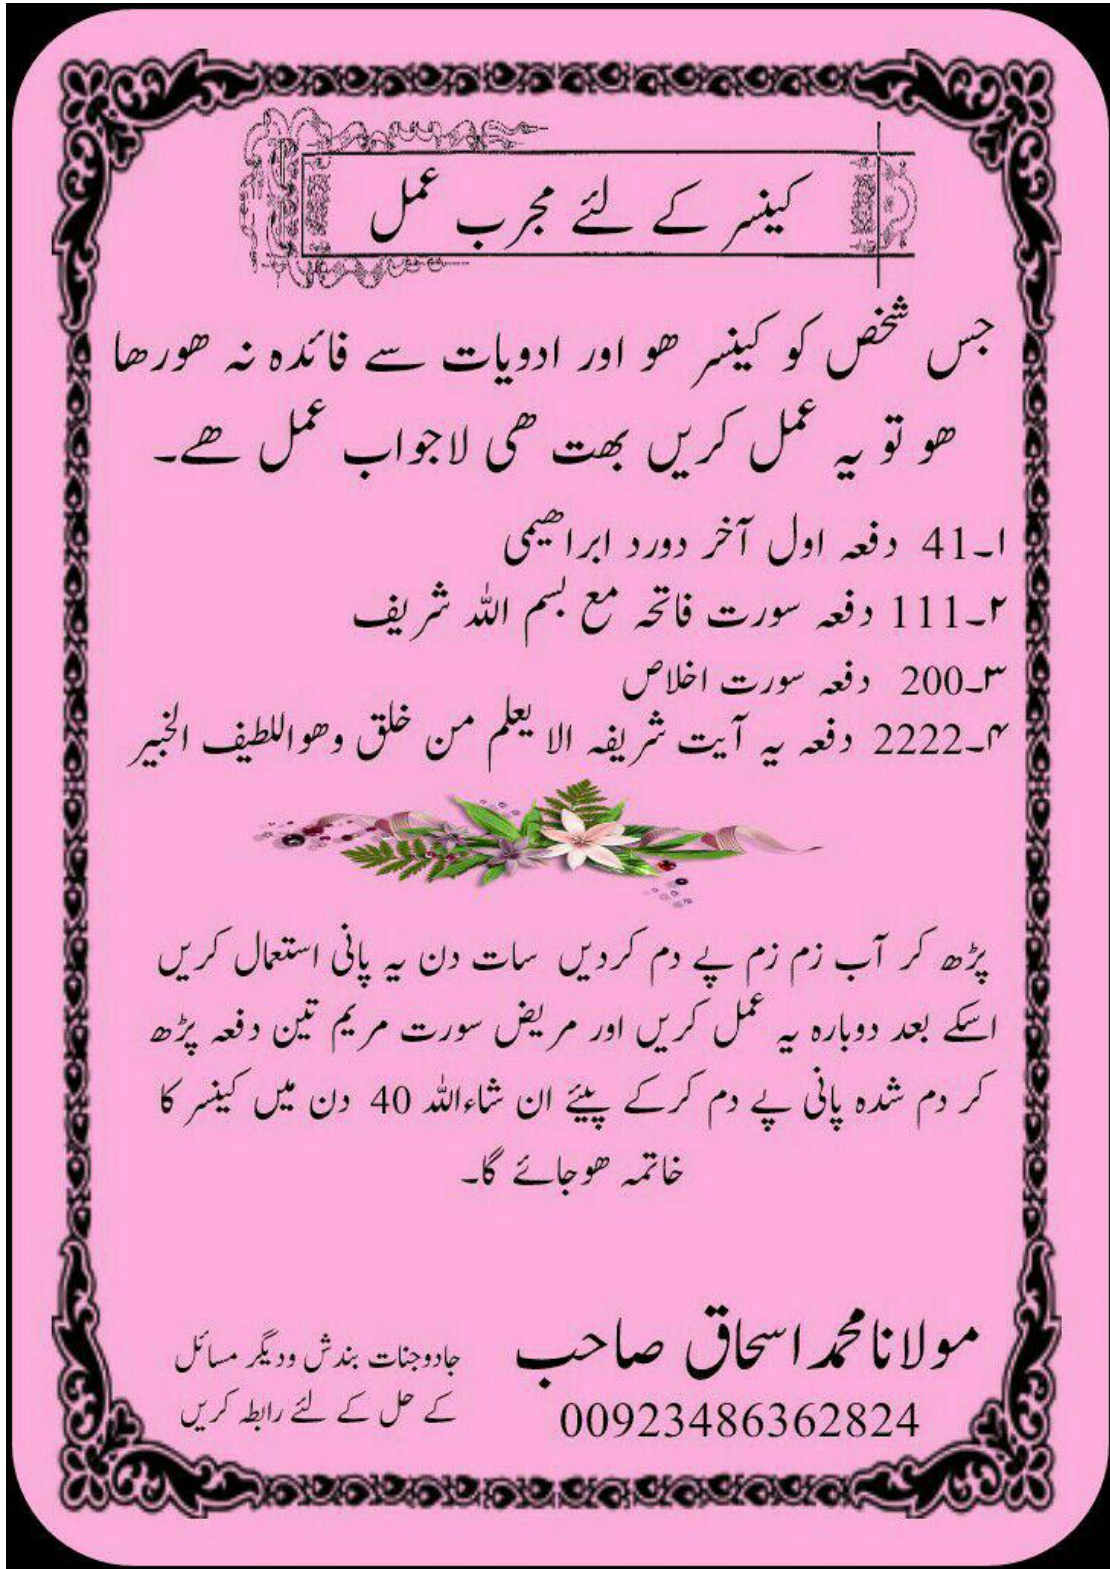 کینسر کے لئے مجرب عمل
جس شخص کو کینسر ھو اور ادویات سے فائدہ نہ ھورھا
ھو تو یہ عمل کریں بھت ھی لاجواب عمل ھے۔
۱۔41 دفعہ اول آخر دورد ابراھیمی
۲۔111 دفعہ سورت فاتحہ مع بسم اللہ شریف
۳۔200 دفعہ سورت اخلاص
۴۔2222 دفعہ یہ آیت شریفہ الا یعلم من خلق وھواللطیف الخبیر
پڑھ کر آب زم زم پے دم کردیں سات دن یہ پانی استعمال کریں
اسکے بعد دوبارہ یہ عمل کریں اور مریض سورت مریم تین دفعہ پڑھ
کر دم شدہ پانی پے دم کرکے پیئے ان شاءاللہ 40 دن میں کینسر کا
خاتمہ ھوجائے گا۔
مولانامحمداسحاق صاحب
00923486362824
جادوجنات بندش ودیگر مسائل
کے حل کے لئے رابطہ کریں